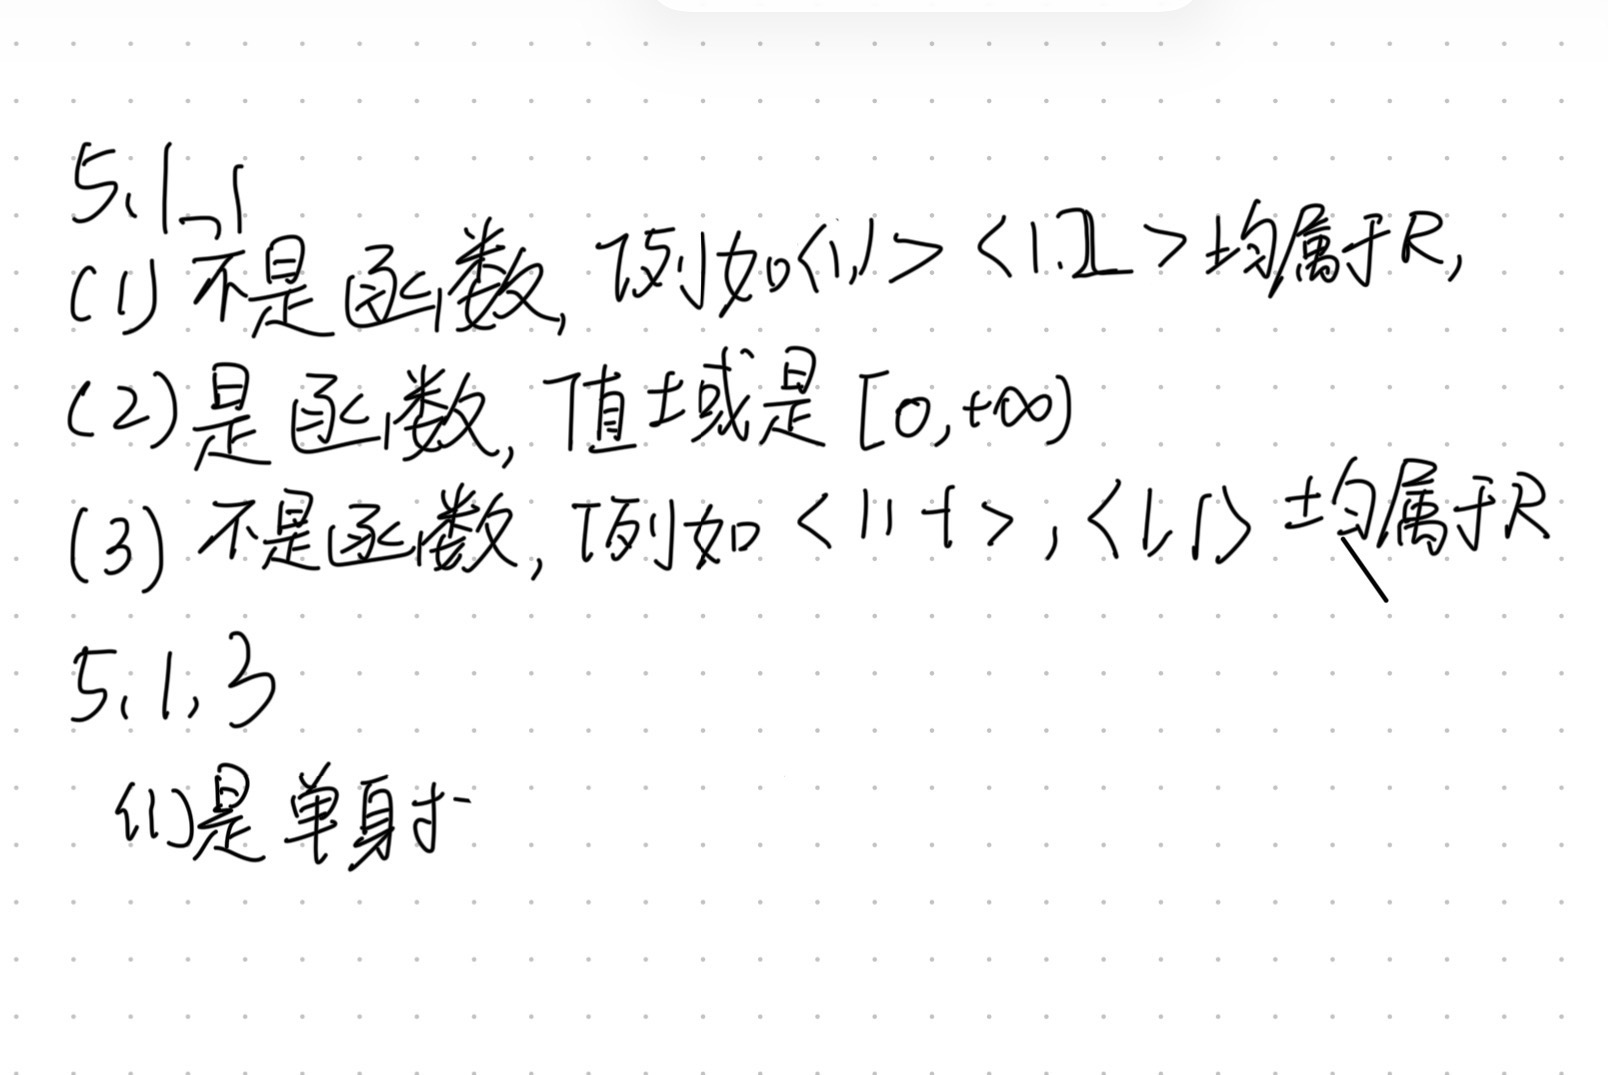 5.1.1
(1) 不是函数, 例如<1,1> <1.2>均属于R,
(2) 是函数, 值域是 [0,+∞)
(3) 不是函数, 例如 <1,-1>, <1,1> 均属于R
5.1.3
(1)是单射